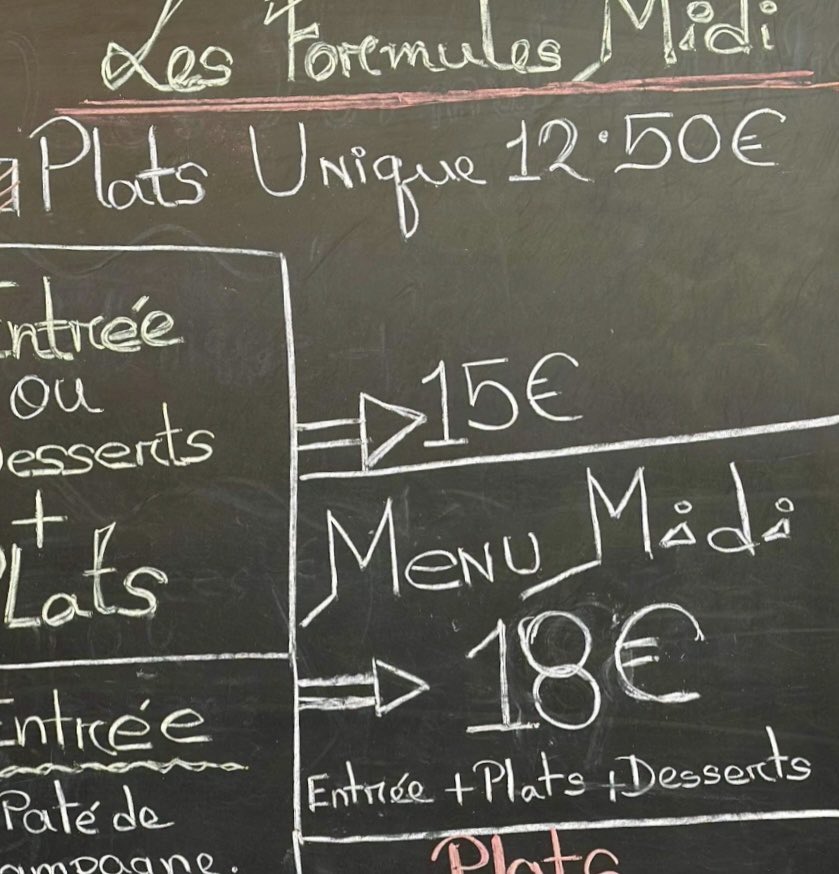 Les Formules Midi
Plats Unique 12.50€
Entrée
ou
Desserts
+
Plats
15€
Menu Midi
18€
Entrée + Plats + Desserts
Entrée
Paté de
ampagne.
Plats